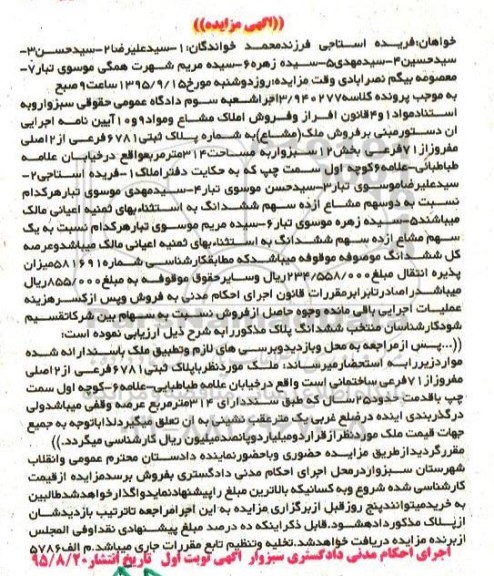 ((آگهی مزایده))
خواهان:فریده استاجی فرزندمحمد خواندگان:۱-سیدعلیرضا۲-سیدحسن۳-
سیدحسین۴-سیدمهدی۵-سیده زهره۶-سیده مریم شهرت همگی موسوی تبار۷-
معصومه بیگم نصرابادی وقت مزایده:روزدوشنبه مورخ۱۳۹۵/۹/۱۵ساعت۹صبح
به موجب پرونده کلاسه۳/۹۴۰۲۷۷اجراشعبه سوم دادگاه عمومی حقوقی سبزواروبه
استنادمواد۱و۴قانون افراز وفروش املاک مشاع ومواد۹و۱۰آیین نامه اجرایی
ان دستورمبنی برفروش ملک(مشاع)به شماره پلاک ثبتی۶۷۸۱فرعی از۲اصلی
مفروزاز۷۱فرعی بخش۱۲سبزواربه مساحت۳۱۴مترمربعواقع درخیابان علامه
طباطبائی-علامه۶کوچه اول سمت چپ که به حکایت دفتراملاک۱-فریده استاجی۲-
سیدعلیرضاموسوی تبار۳-سیدحسن موسوی تبار۴-سیدمهدی موسوی تبارهرکدام
نسبت به دوسهم مشاع ازده سهم ششدانگ به استثناءبهای ثمنیه اعیانی مالک
میباشند۵-سیده زهره موسوی تبار۶-سیده مریم موسوی تبارهرکدام نسبت به یک
سهم مشاع ازده سهم ششدانگ به استثناءبهای ثمنیه اعیانی مالک میباشدوعرصه
کل ششدانگ موصوفه موقوفه میباشدکه مطابقکارشناسی شماره۵۸۱۶۹۱میزان
پذیره انتقال مبلغ۲۳۴/۵۵۸/۰۰۰ریال وسایرحقوق موقوفه به مبلغ۸۵۵/۰۰۰ریال
میباشدصادرتابرابرمقررات قانون اجرای احکام مدنی به فروش وپس ازکسرهزینه
عملیات اجرایی باقی مانده وجوه حاصل ازفروش نسبت به سهام بین شرکاتقسیم
شودکارشناسان منتخب ششدانگ پلاک مذکوررابه شرح ذیل ارزیابی نموده است:
((...پس ازمراجعه به محل وبازدیدوبرسی های لازم وتطبیق ملک باسندارائه شده
مواردزیررابه استحضارمیرساند: ملک موردنظرباپلاک ثبتی۶۷۸۱فرعی از۲اصلی
مفروزاز۷۱فرعی‌ساختمانی است واقع درخیابان علامه طباطبایی-علامه۶-کوچه اول سمت
چپ باقدمت حدود۲۵سال که طبق سنددارای ۳۱۴مترمربع عرصه وقفی میباشدولی
درگذربندی اینده درضلع غربی یک مترعقب نشینی به ان تعلق میگیردلذاباتوجه به جمیع
جهات قیمت ملک موردنظرازقراردومیلیاردوپانصدمیلیون ریال کارشناسی میگردد.))
مقررگردیدازطریق مزایده حضوری وباحضورنماینده دادستان محترم عمومی وانقلاب
شهرستان سبزواردرمحل اجرای احکام مدنی دادگستری بفروش برسدمزایده ازقیمت
کارشناسی شده شروع وبه کسانیکه بالاترین مبلغ راپیشنهادنمایدواگذارخواهدشدطالبین
به خریدمیتوانندپنج روزقبل ازبرگزاری مزایده به این اجرامراجعه تاترتیب بازدیدشان
ازپلاک مذکوردادهشود.قابل ذکراینکه ده درصد مبلغ پیشنهادی نقداوفی المجلس
ازبرنده مزایده دریافت خواهدشد.تخلیه وتنظیم تابع مقررات جاری میباشد.م الف۵۷۸۶
اجرای احکام مدنی دادگستری سبزوار آگهی نوبت اول تاریخ انتشار۹۵/۸/۲۰